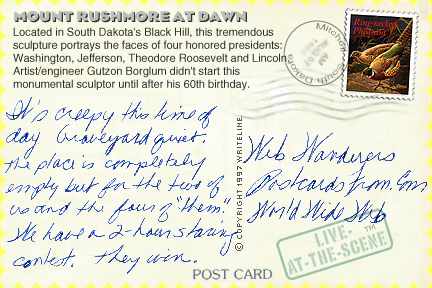 MOUNT RUSHMORE AT DAWN
Located in South Dakota's Black Hill, this tremendous
sculpture portrays the faces of four honored presidents:
Washington, Jefferson, Theodore Roosevelt and Lincoln
Artist/engineer Gutzon Borglum didn't start this
monumental sculptor until after his 60th birthday.
Ring-necked
Pheasant
Mitchell, South Dakota
It's creepy this time of
day. Graveyard quiet.
The place is completely
empty but for the two of
us and the four of "them."
We have a 2-hour staring
contest. They win.
© COPYRIGHT 1997 WRITELINE
Web Wanderers
Postcards From.Com
World Wide Web
LIVE-
AT-THE-SCENE
TM
POST CARD